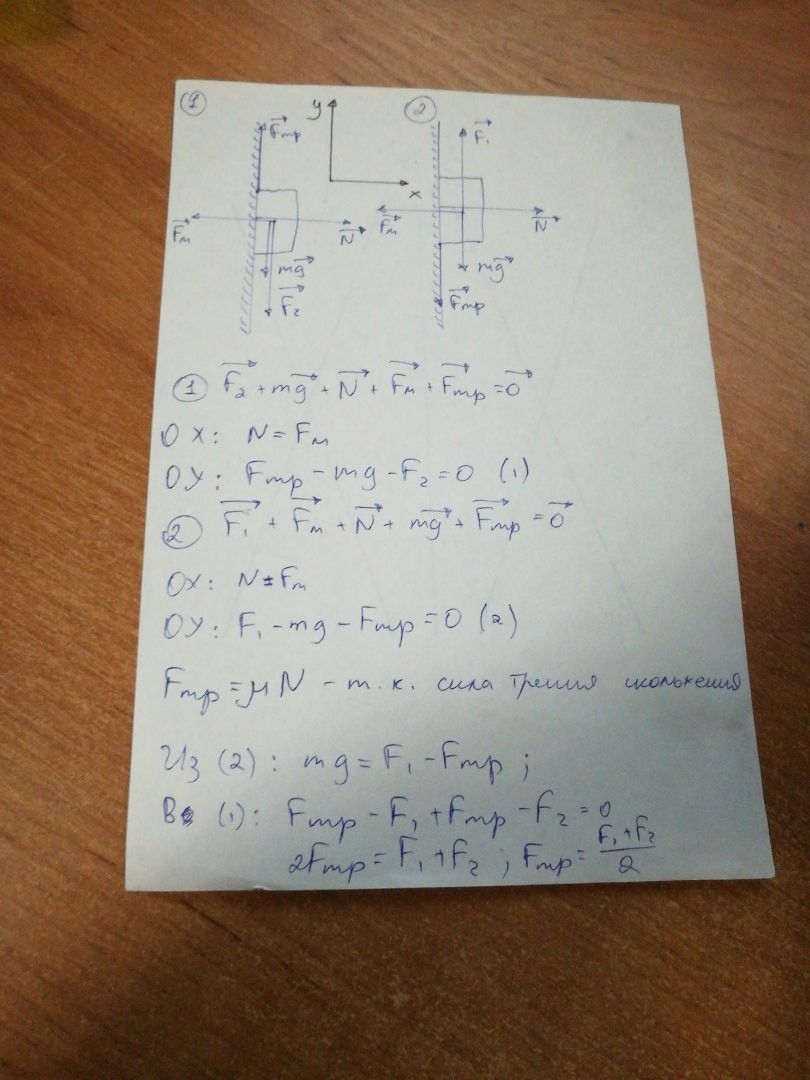 1 y 2
Fтр F₁
x
Fм N Fм N
mg mg
F₂ Fтр
1 F₂ + mg + N + Fм + Fтр = 0
OX: N = Fм
OY: Fтр - mg - F₂ = 0 (1)
2 F₁ + Fм + N + mg + Fтр = 0
OX: N = Fм
OY: F₁ - mg - Fтр = 0 (2)
Fтр = μN - т.к. сила трения скольжения
Из (2): mg = F₁ - Fтр ;
В (1): Fтр - F₁ + Fтр - F₂ = 0
2Fтр = F₁ + F₂ ; Fтр = (F₁ + F₂)/2